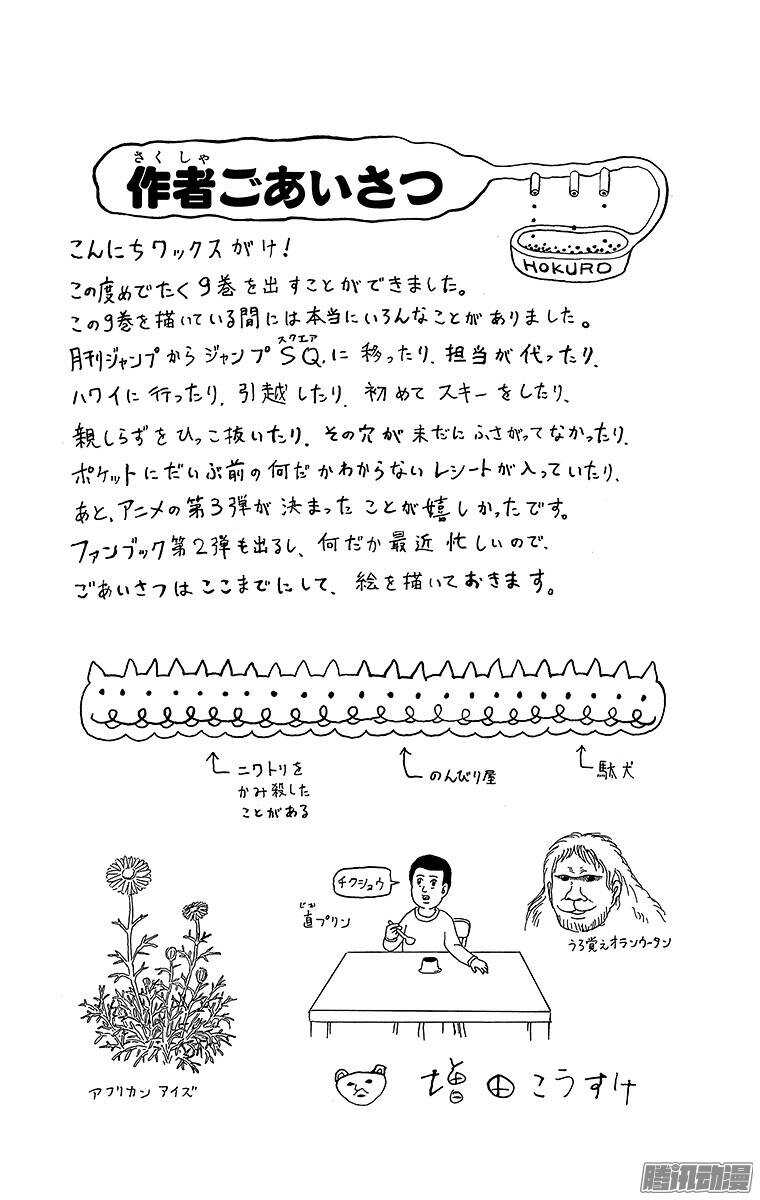 さくしゃ
作者ごあいさつ
HOKURO
こんにちワックスがけ！
この度めでたく9巻を出すことができました。
この9巻を描いている間には本当にいろんなことがありました。
スクエア
月刊ジャンプからジャンプSQ.に移ったり、担当が代ったり、
ハワイに行ったり、引越したり、初めてスキーをしたり、
親しらずをひっこ抜いたり、その穴が未だにふさがってなかったり、
ポケットにだいぶ前の何だかわからないレシートが入っていたり、
あと、アニメの第3弾が決まったことが嬉しかったです。
ファンブック第2弾も出るし、何だか最近忙しいので、
ごあいさつはここまでにして、絵を描いておきます。
ニワトリを
かみ殺した
ことがある
のんびり屋
駄犬
チクショウ
じか
直プリン
うろ覚えオランウータン
アフリカンアイズ
増田こうすけ
腾讯动漫